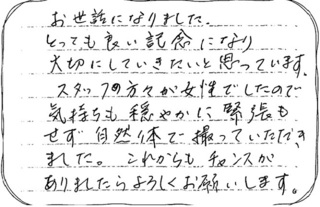 お世話になりました.
とっても良い記念になり
大切にしていきたいと思っています.
スタッフの方々が女性でしたので
気持ちも穏やかに緊張も
せず自然体で撮っていただき
ました。これからもチャンスが
ありましたらよろしくお願いします。